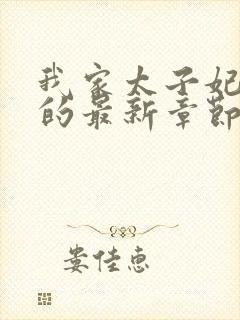 我家太子妃
的最新章節
娄佳惠